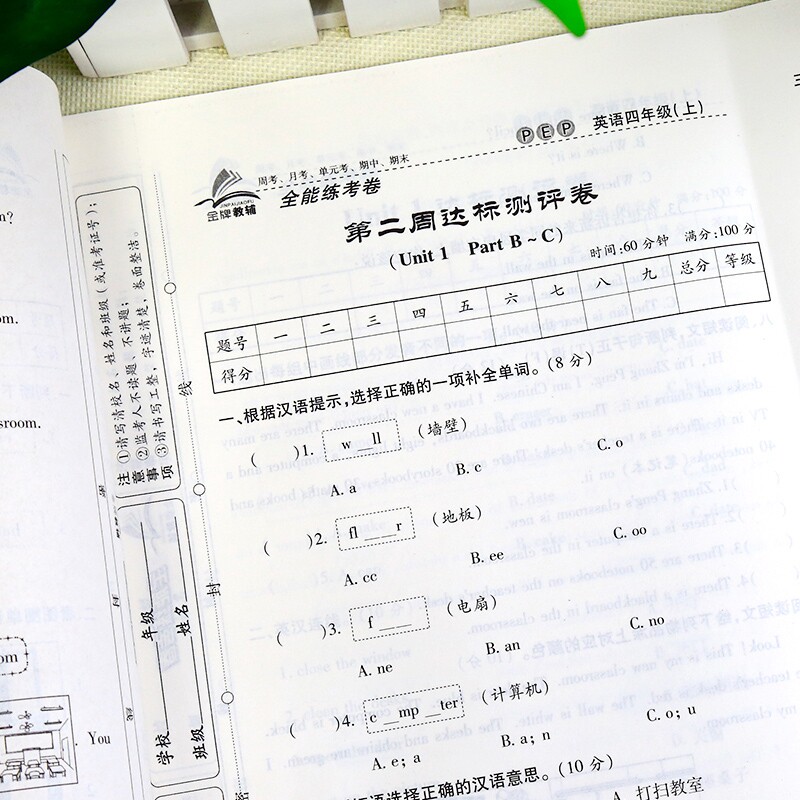 PEP 英语四年级(上)
周考、月考、单元考、期中、期末
JINPAIJIAOFU
金牌教辅
全能练考卷
第二周达标测评卷
(Unit 1 Part B~C)
时间:60分钟 满分:100分
题号 一 二 三 四 五 六 七 八 九 总分 等级
得分
一、根据汉语提示,选择正确的一项补全单词。(8分)
( )1. w __ll (墙壁)
A. a B. c C. o
( )2. fl ____ r (地板)
A. cc B. ee C. oo
( )3. f ____ (电扇)
A. ne B. an C. no
( )4. c __ mp __ter (计算机)
A. e; a B. a; n C. o; u
语选择正确的汉语意思。(10分)
A. 打扫教室
注意事项
①请写清校名、姓名和班级(或准考证号);
②监考人不读题、不讲题;
③请书写工整,字迹清楚,卷面整洁。
学校 年级
班级 姓名
线
封
密
om.
sroom.
om
. You